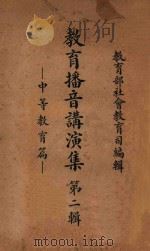 狗
教育部社會教育司編輯
教育播音講演集 第二輯
—中等教育篇—
www.duxiu.com